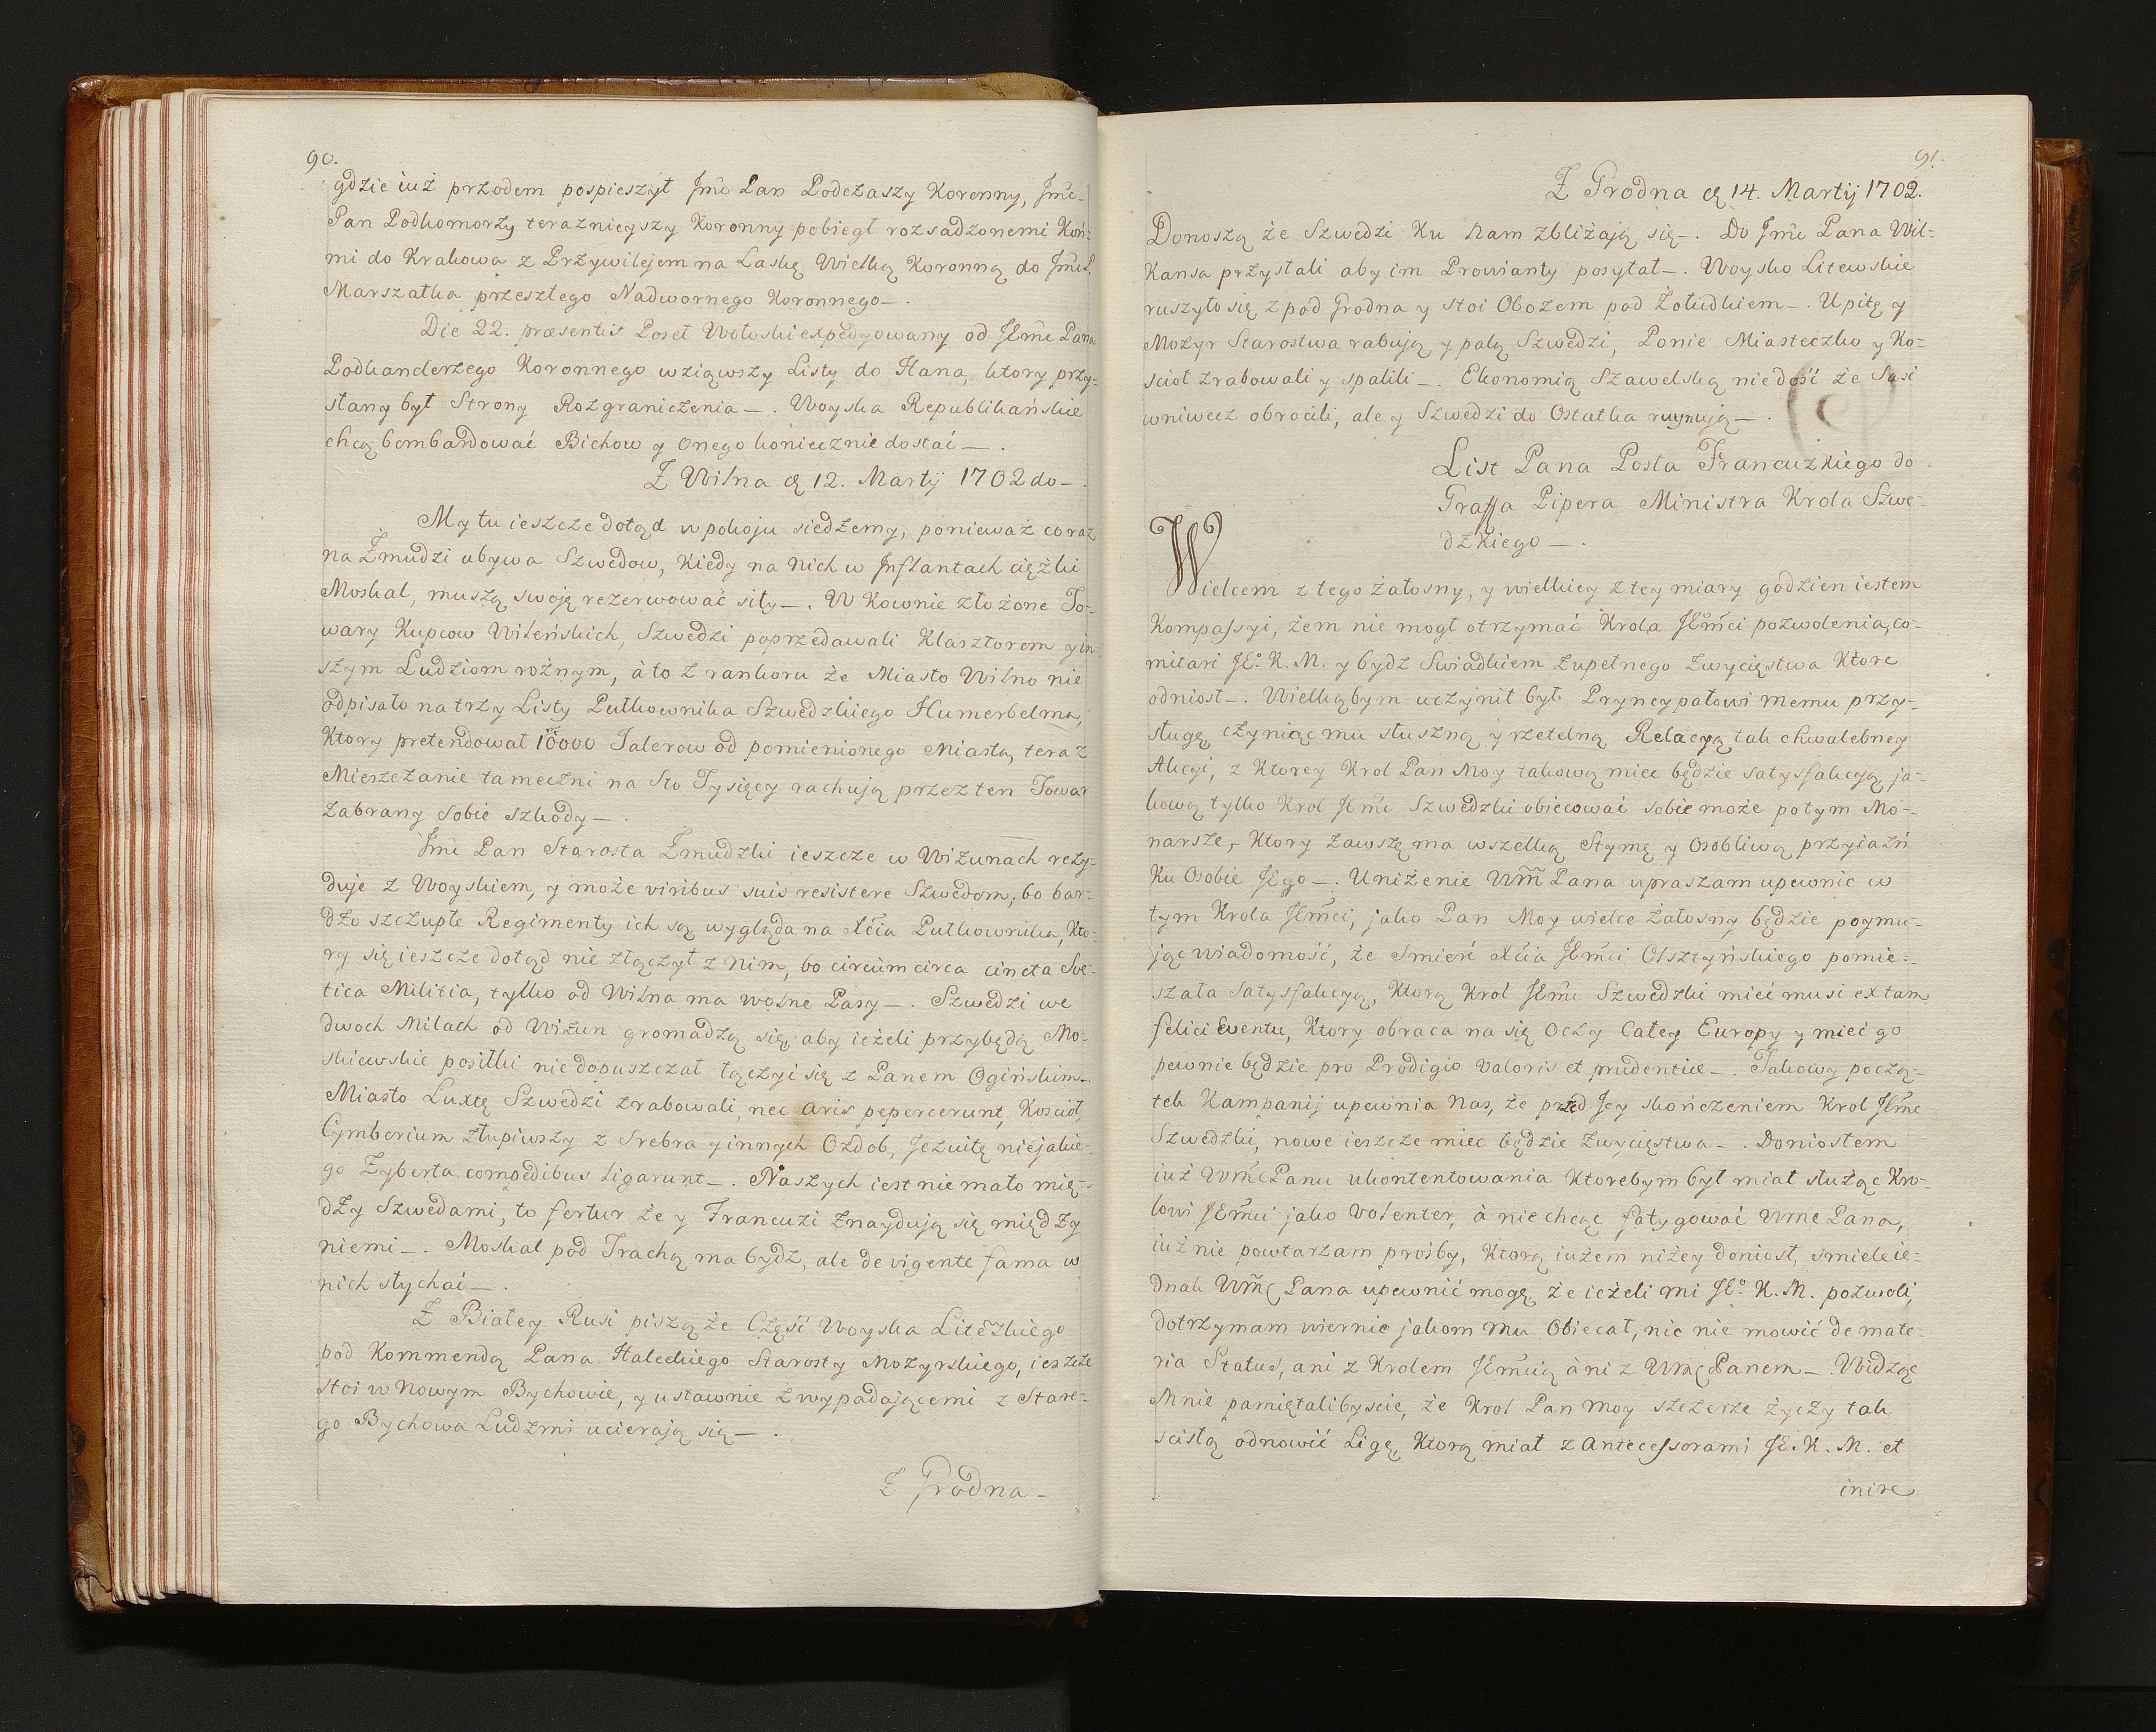 90.
gdzie iuż przodem pospieszył Jmc̃ Pan Podczaszy Koronny, Jmc̃
Pan Podkomorzy terazniejszy Koronny pobiegł rozsadzonemi Koń-
mi do Krakowa z Przywilejem na Laskę Wielką Koronną do Jmc̃ P.
Marszałka przeszłego Nadwornego Koronnego—.
Die 22. præsentis Poseł Wołoski expedyowany od JEmc̃ Pana
Podkanclerzego Koronnego wziąwszy Listy do Hana, ktory przy-
słany był Strony Rozgraniczenia—. Woyska Republikańskie
chcą bombardować Bichow y onego koniecznie dostać—.
Z Wilna d. 12. Martij 1702 do—.
My tu ieszcze dotąd w pokoju siedzemy, ponieważ coraz
na Zmudzi ubywa Szwedow, Kiedy na nich w Inflantach ciężki
Moskal, muszą swoję rezerwować siły—. W Kownie złożone To-
wary Kupcow Wileńskich, Szwedzi poprzedawali Klasztorom y in-
szym Ludziom rożnym, à to z rankoru że Miasto Wilno nie
odpisało na trzy Listy Pułkownika Szwedzkiego Humerbelma,
Ktory pretendował 10000 Talerow od pomienionego Miasta, teraz
Mieszczanie tameczni na Sto Tysięcy rachują przez ten Towar
zabrany sobie szkody—.
Jmc̃ Pan Starosta Zmudzki ieszcze w Wiżunach rezy-
duje z Woyskiem, y może viribus suis resistere Szwedom, bo bar-
dzo szczupłe Regimenty ich są wygląda na Xcia Pułkownika, Kto-
ry się ieszcze dotąd nie złączył z nim, bo circum circa cincta Sve-
tica Militia, tylko od Wilna ma wolne Pasy—. Szwedzi we
dwoch Milach od Wiżun gromadzą się, aby ieżeli przybędą Mo-
skiewskie posiłki nie dopuszczał łączyć się z Panem Ogińskim—.
Miasto Luxtę Szwedzi zrabowali, nec aris pepercerunt, Kościoł,
Cymborium złupiwszy z srebra y innych Ozdob, Jezuitę niejakie-
go Zyberta compedibus ligarunt—. Naszych iest nie mało mię-
dzy Szwedami, to fertur że y Francuzi znaydują się między
niemi—. Moskal pod Trachą ma bydz, ale de vigente fama w
nich słychać—.
Z Białey Rusi piszą że Część Woyska Litewskiego
pod Kommendą Pana Haleckiego Starosty Mozyrskiego, ieszcze
stoi w Nowym Bychowie, y ustawnie z wypadającemi z Stare-
go Bychowa Ludzmi ucierają się—.
Z Grodna—
91.
Z Grodna d. 14. Martij 1702.
Donoszą że Szwedzi ku nam zbliżają się—. Do Jmc̃ Pana Wil-
kansa przysłali aby im Prowianty posyłał—. Woysko Litewskie
ruszyło się z pod Grodna y stoi Obozem pod Żołudkiem—. Upitę y
Mozyr Starostwa rabują y palą Szwedzi, Ponie Miasteczko y Ko-
scioł zrabowali y spalili—. Ekonomią Szawelską nie dość że Sasi
wniwecz obrocili, ale y Szwedzi do Ostatka ruynują—.
List Pana Posła Francuzkiego do
Graffa Pipera Ministra Krola Szwe-
dzkiego—.
Wielcem z tego żałosny, y wielkiey z tey miary godzien iestem
Kompassyi, żem nie mogł otrzymać Krola JEmci pozwolenia, co-
mitari JE.º K. M. y bydz Swiadkiem zupełnego zwycięstwa Ktore
odniosł—. Wielkąbym uczynił był Pryncypałowi memu przy-
sługę czyniąc mu słuszną y rzetelną Relacyą tak chwalebney
Akcyi, z Ktorey Krol Pan Moy takową miec będzie satysfakcyą, ja-
kową tylko Krol JEmc̃ Szwedzki obiecować sobie może po tym Mo-
narsze, Ktory zawszę ma wszelką Stymę y Osobliwą przyiaźń
Ku Osobie JEgo—. Uniżenie Wm̃ Pana upraszam upewnic w
tym Krola JEmci, jako Pan Moy wielce żałosny będzie poymu-
jąc wiadomość, że Smierć Xcia JEmci Olsztyńskiego pomie-
szała satysfakcyą, Ktorą Krol JEmc̃ Szwedzki mieć musi ex tam
felici Eventu, Ktory obraca na się Oczy Całey Europy y mieć go
pewnie będzie pro Prodigio valoris et prudentiæ—. Takowy począ-
tek Kampanij upewnia Nas, że przed Jey skończeniem Krol JEmc̃
Szwedzki, nowe ieszcze miec będzie zwycięstwa—. Doniosłem
iuż Wm̃c Panu ukontentowania Ktorebym był miał służąc Kro-
lowi JEmci jako Volenter, à nie chcąc fatygować Wmc Pana,
iuż nie powtarzam proźby, Ktorą iużem niżey doniosł, smiele ie-
dnak Wm̃c Pana upewnić mogę, że ieżeli mi JE.º K. M. pozwoli,
dotrzymam wiernie jakom mu Obiecał, nic nie mowić de mate-
ria Status, ani z Krolem JEmcią àni z Wm̃c Panem—. Widząc
Mnie pamiętalibyscie, że Krol Pan moy szczerze życzy tak
scisłą odnowić Ligę, Ktorą miał z Antecessorami JE. K. M. et
inire